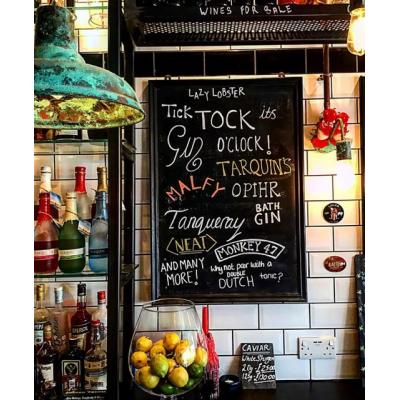 WINES FOR SALE
LAZY LOBSTER
Tick TOCK its
GIN O'CLOCK!
TARQUIN'S
MALFY OPIHR
Tanqueray BATH GIN
NEAT MONKEY 47
AND MANY MORE!
Why not pair with a DOUBLE DUTCH tonic?
CAVIAR